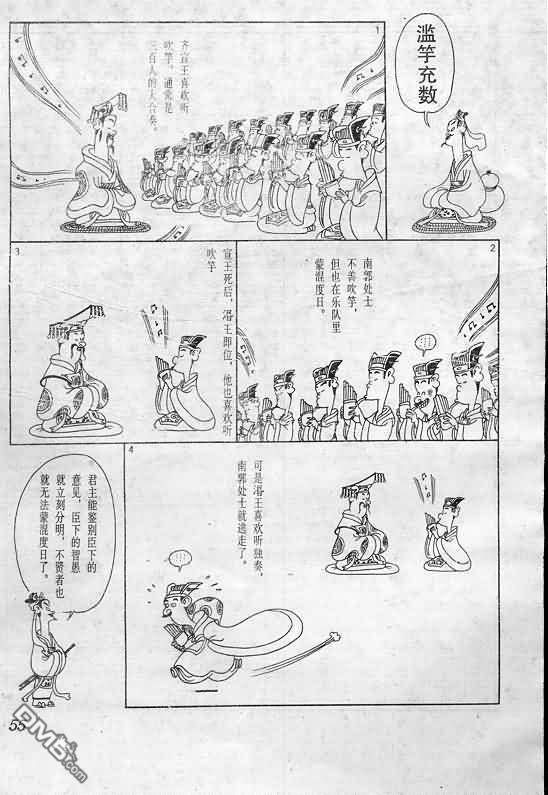 滥竽充数
1
齐宣王喜欢听
吹竽。通常是
三百人的大合奏。
2
南郭处士
不善吹竽，
但也在乐队里
蒙混度日。
3
宣王死后，湣王即位，他也喜欢听
吹竽
4
可是湣王喜欢听独奏，
南郭处士就逃走了。
君主能鉴别臣下的
意见，臣下的智愚
就立刻分明，不贤者也
就无法蒙混度日了。
55
DM5.com